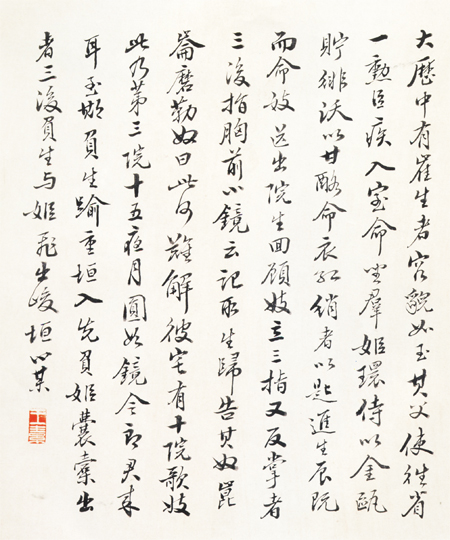 大歷中有崔生者容貌如玉其父使往省
一勲臣疾入室命坐羣姬環侍以金甌
貯緋沃以甘酪命衣紅綃者以匙進生既
而命送出院生回顧妓立三指又反掌者
三後指胸前小鏡云記取生歸告其奴崑
崙磨勒奴曰此何難解彼宅有十院歌妓
此乃第三院十五夜月圓如鏡令郎君來
耳至期負生踰重垣入先負姬囊橐出
者三後負生与姬飛出峻垣 小某